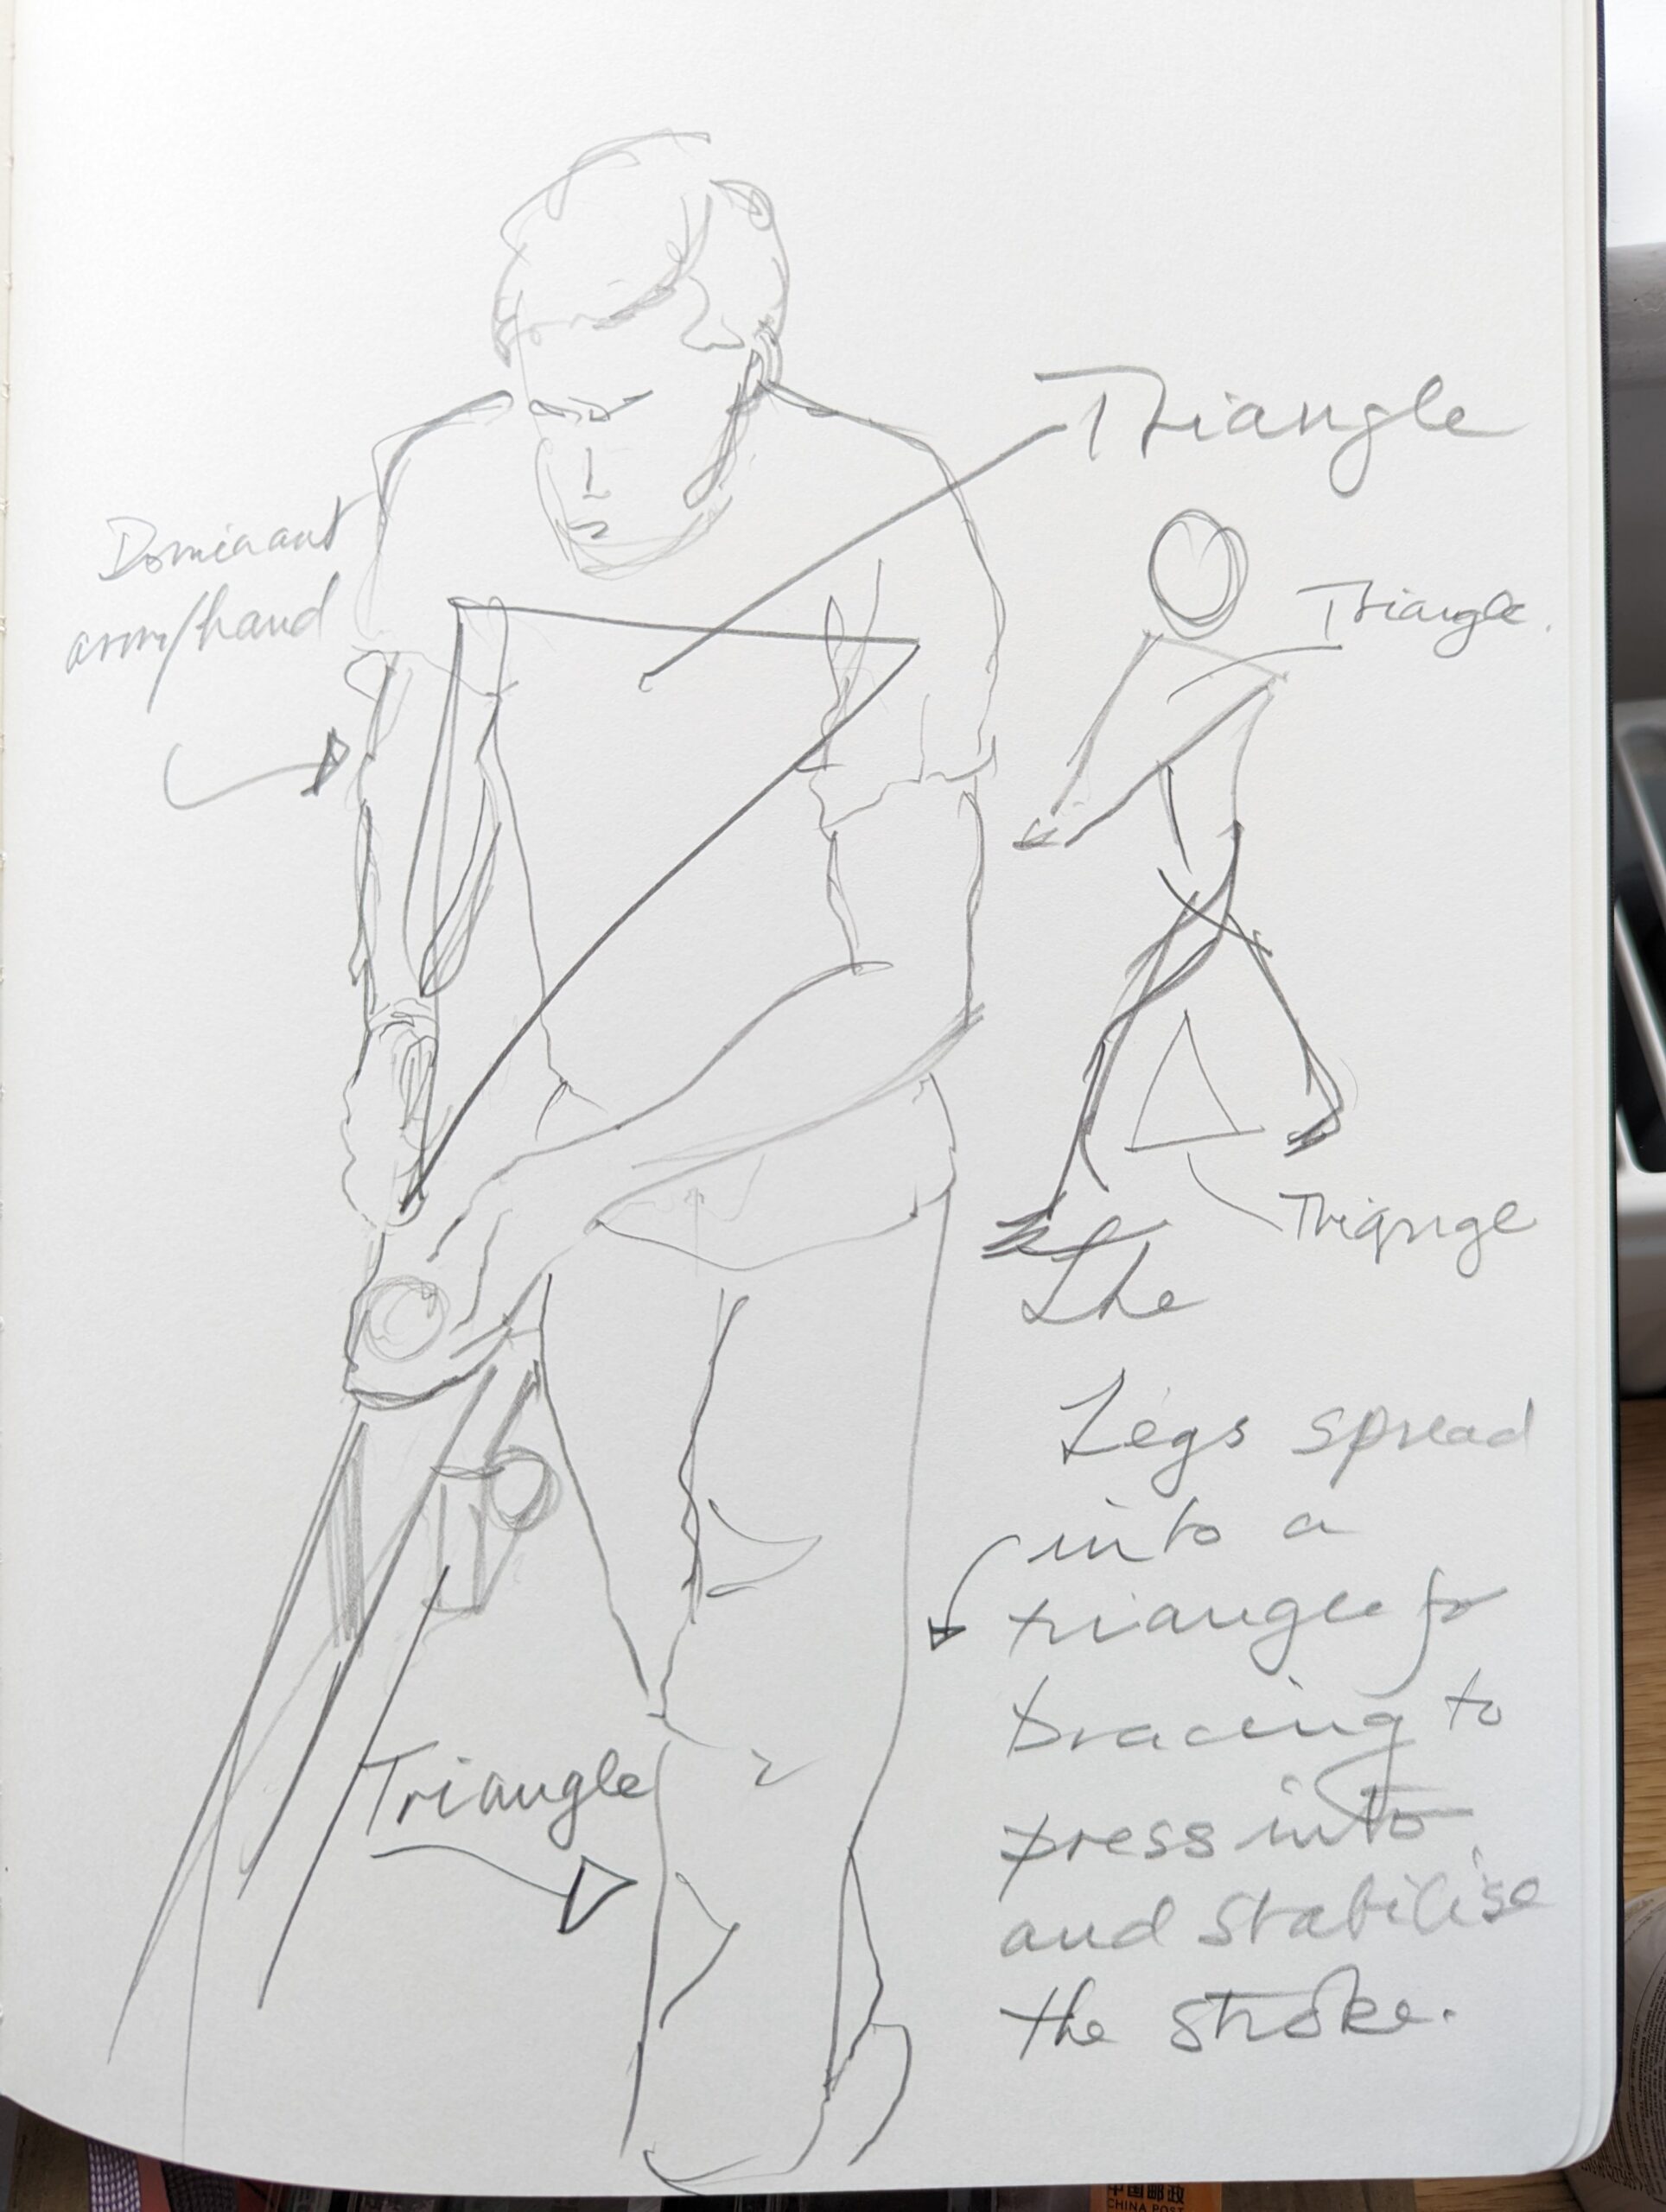 Triangle
Dominant
arm/hand
Triangle.
Triangle
The
Legs spread
into a
triangle for
bracing to
press into
and stabilise
the stroke.
Triangle
中国邮政
CHINA POST